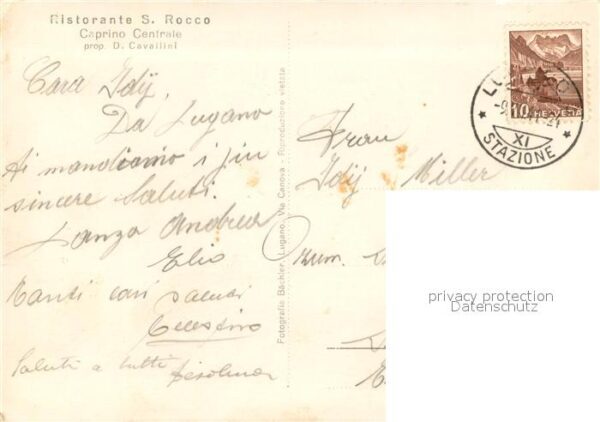 Ristorante S. Rocco
Caprino Centrale
prop. D. Cavallini
Cara Idij,
Da Lugano
Ai mandiamo i piu
sincere Saluti.
Lanza Andrea
Elio
Tanti cari saluti
Celestino
Saluti a tutti
Fotografia Bächler, Lugano, Via Canova - Riproduzione vietata
10 HELVETIA
LUGANO
-9.
XI
STAZIONE
Frau
Idij Miller
privacy protection
Datenschutz